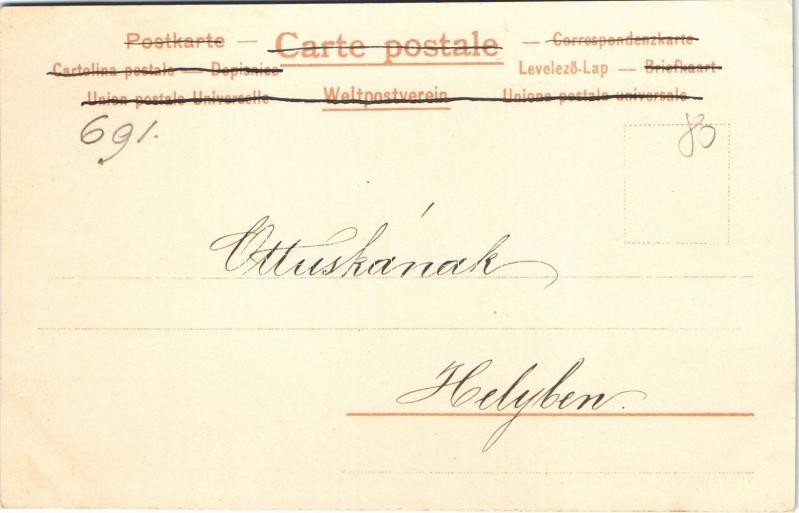 Postkarte — Carte postale — Correspondenzkarte
Cartolina postale — Dopisnice Levelező-Lap — Briefkaart
Union postale Universelle Weltpostverein Unione postale universale
691. 80
Ottuskának
Helyben.